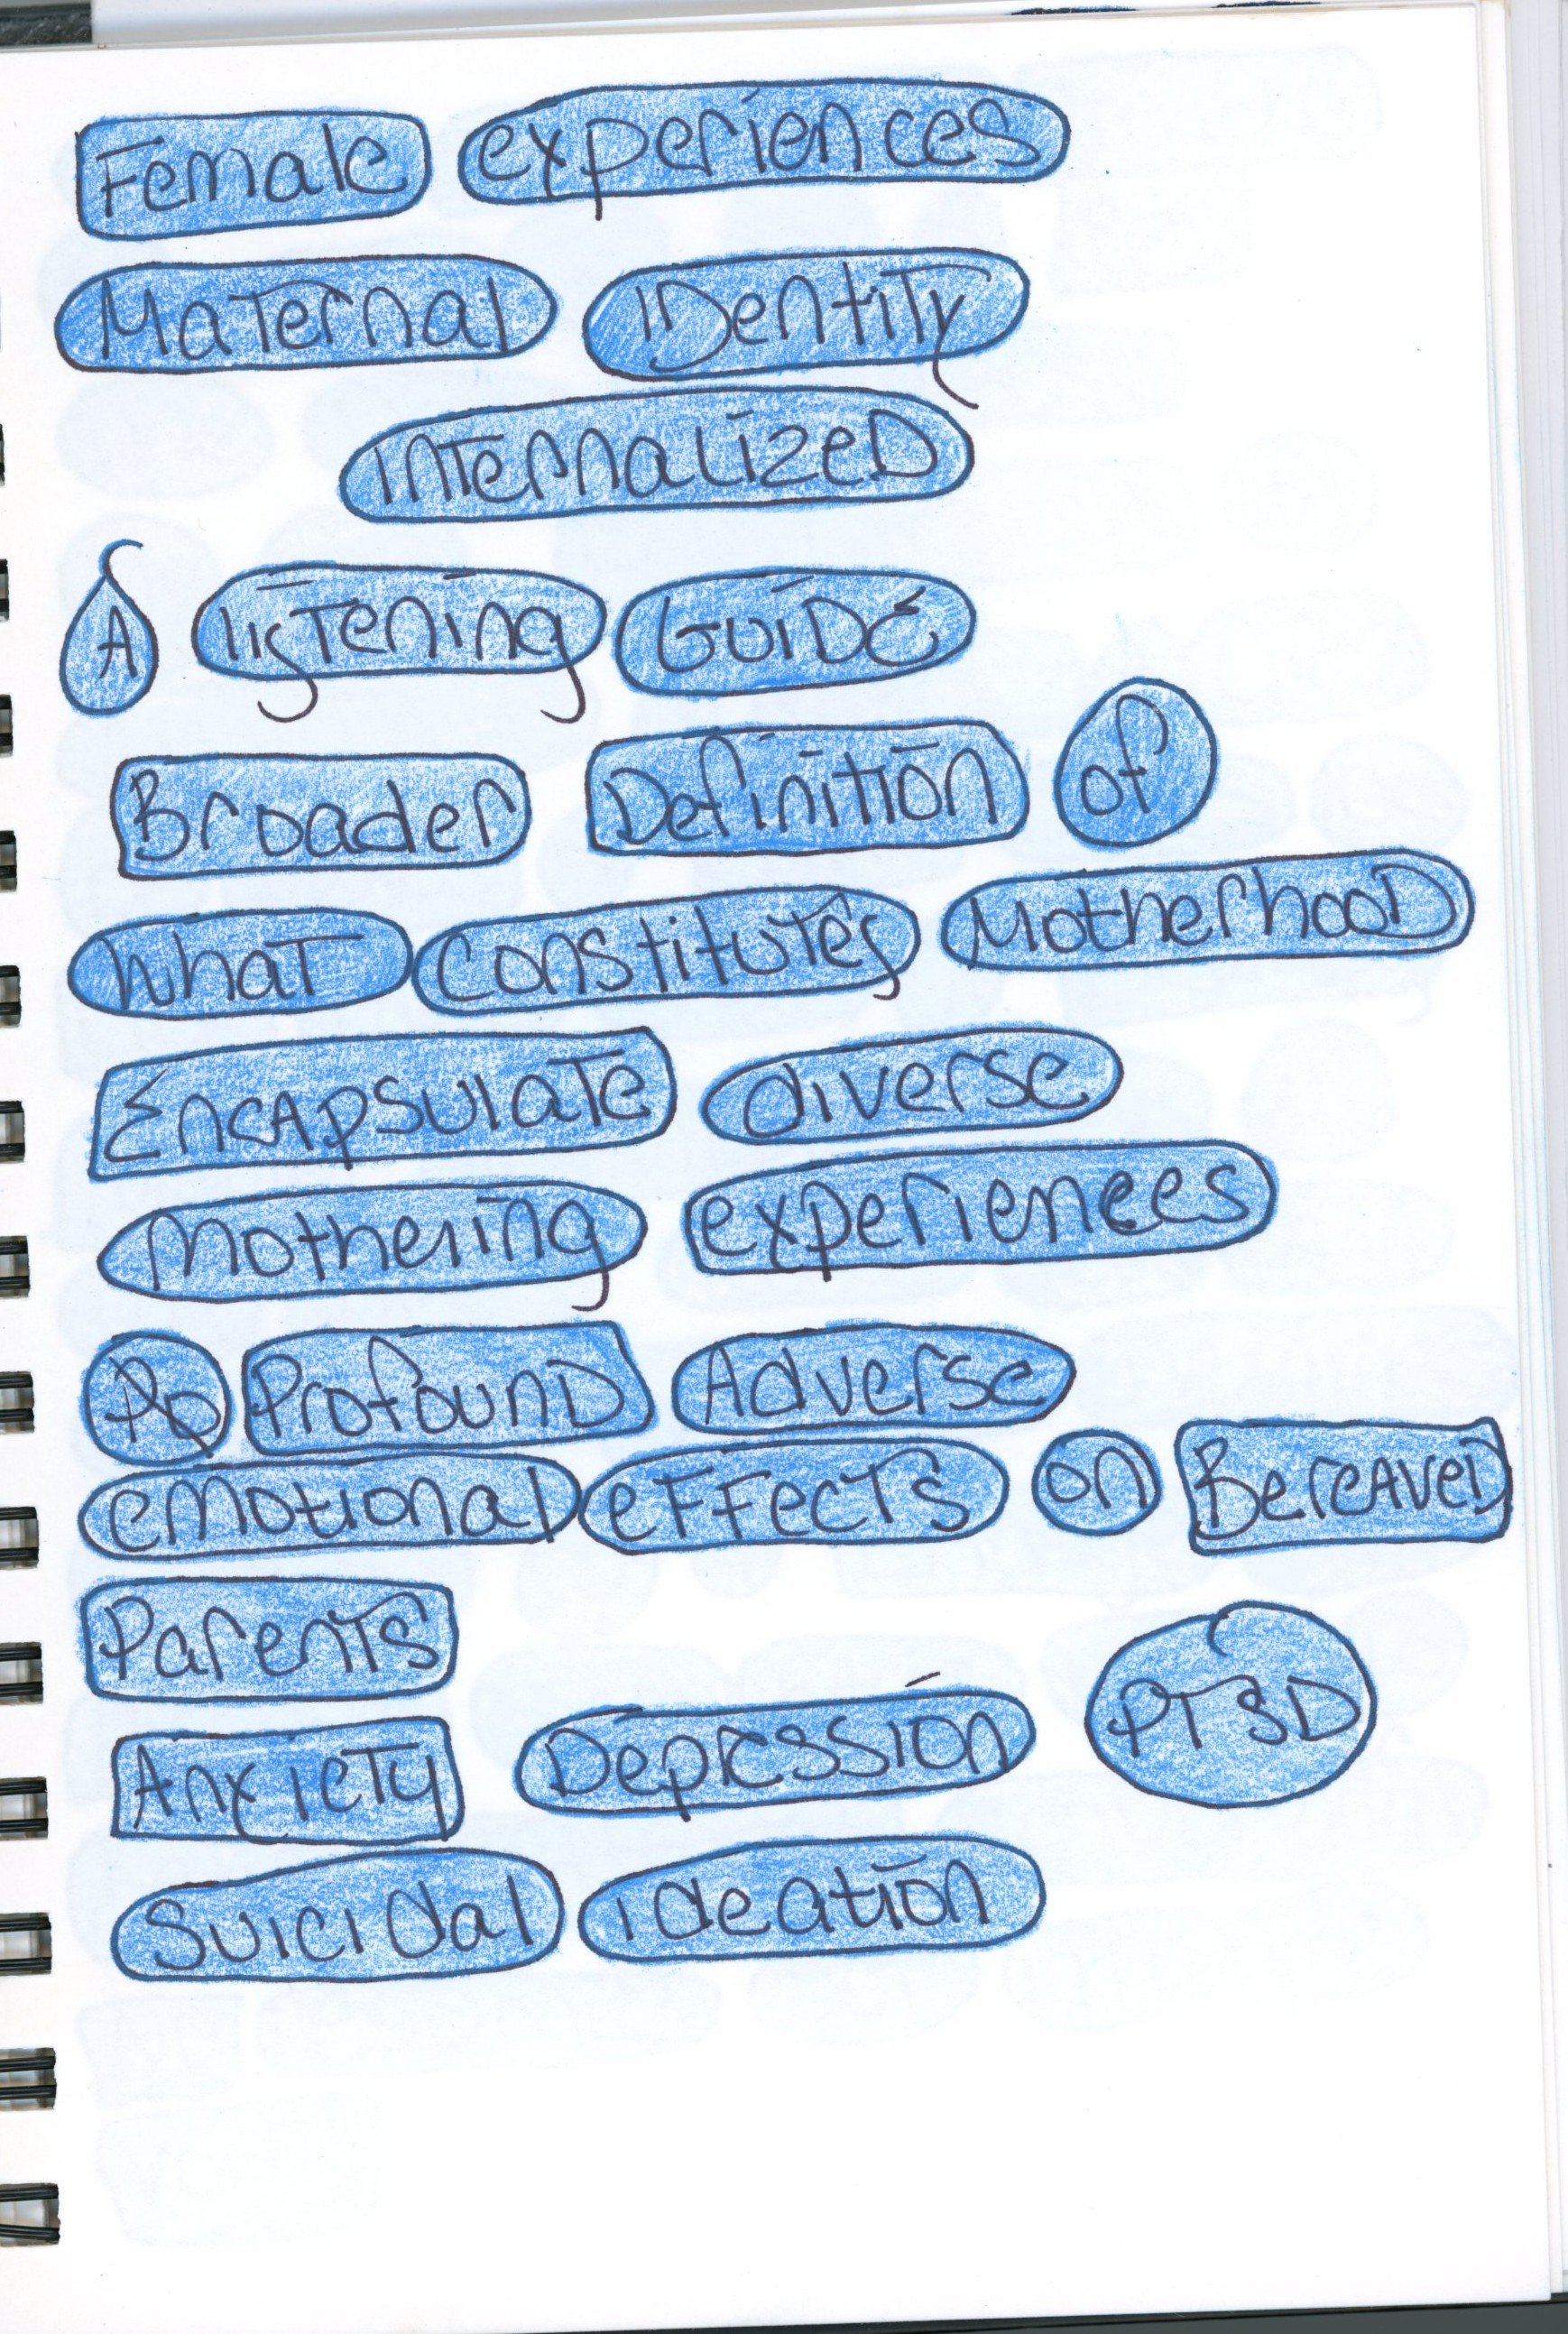 Female experiences
Maternal IDentity
InternalizeD
A listening GuiDE
Broader Definition of
What constitutes MotherhooD
EncApsulate diverse
Mothering experiences
ProfounD Adverse
emotional effects on BereAveD
Parents
Anxiety Depression PTSD
Suicidal ideation